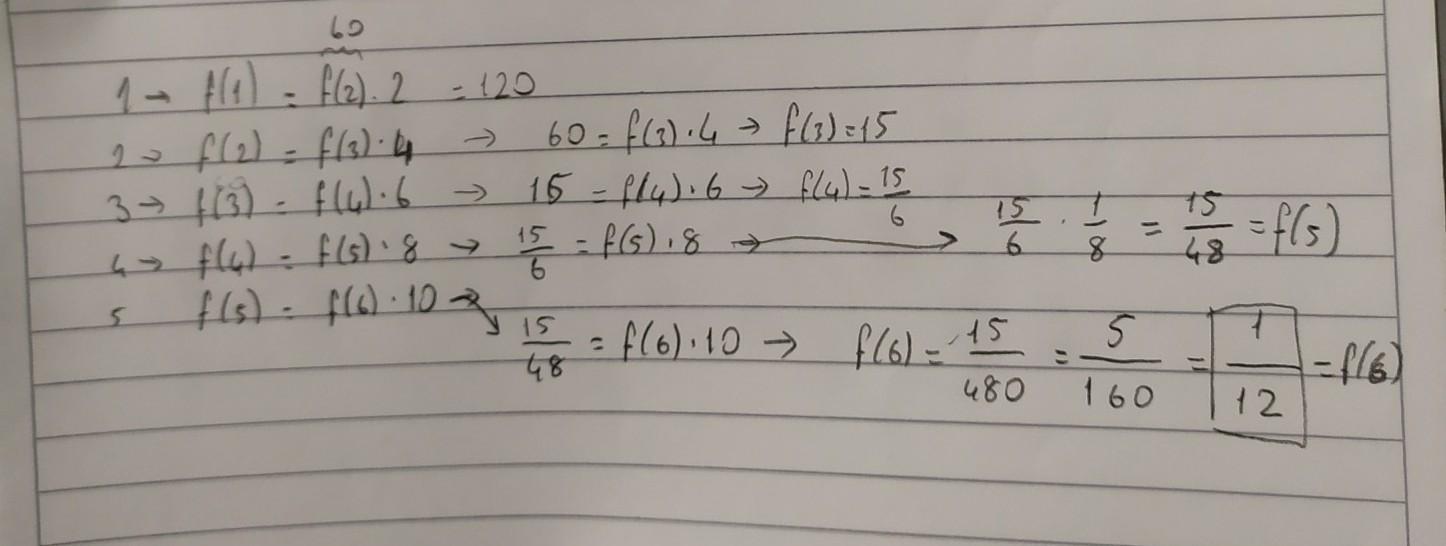 60
1 → f(1) = f(2) . 2 = 120
2 → f(2) = f(3) · 4 → 60 = f(3) · 4 → f(3) = 15
3 → f(3) = f(4) · 6 → 15 = f(4) · 6 → f(4) = 15/6
4 → f(4) = f(5) · 8 → 15/6 = f(5) . 8 → 15/6 · 1/8 = 15/48 = f(5)
5 f(5) = f(6) · 10 →
15/48 = f(6) · 10 → f(6) = 15/480 = 5/160 = 1/12 = f(6)